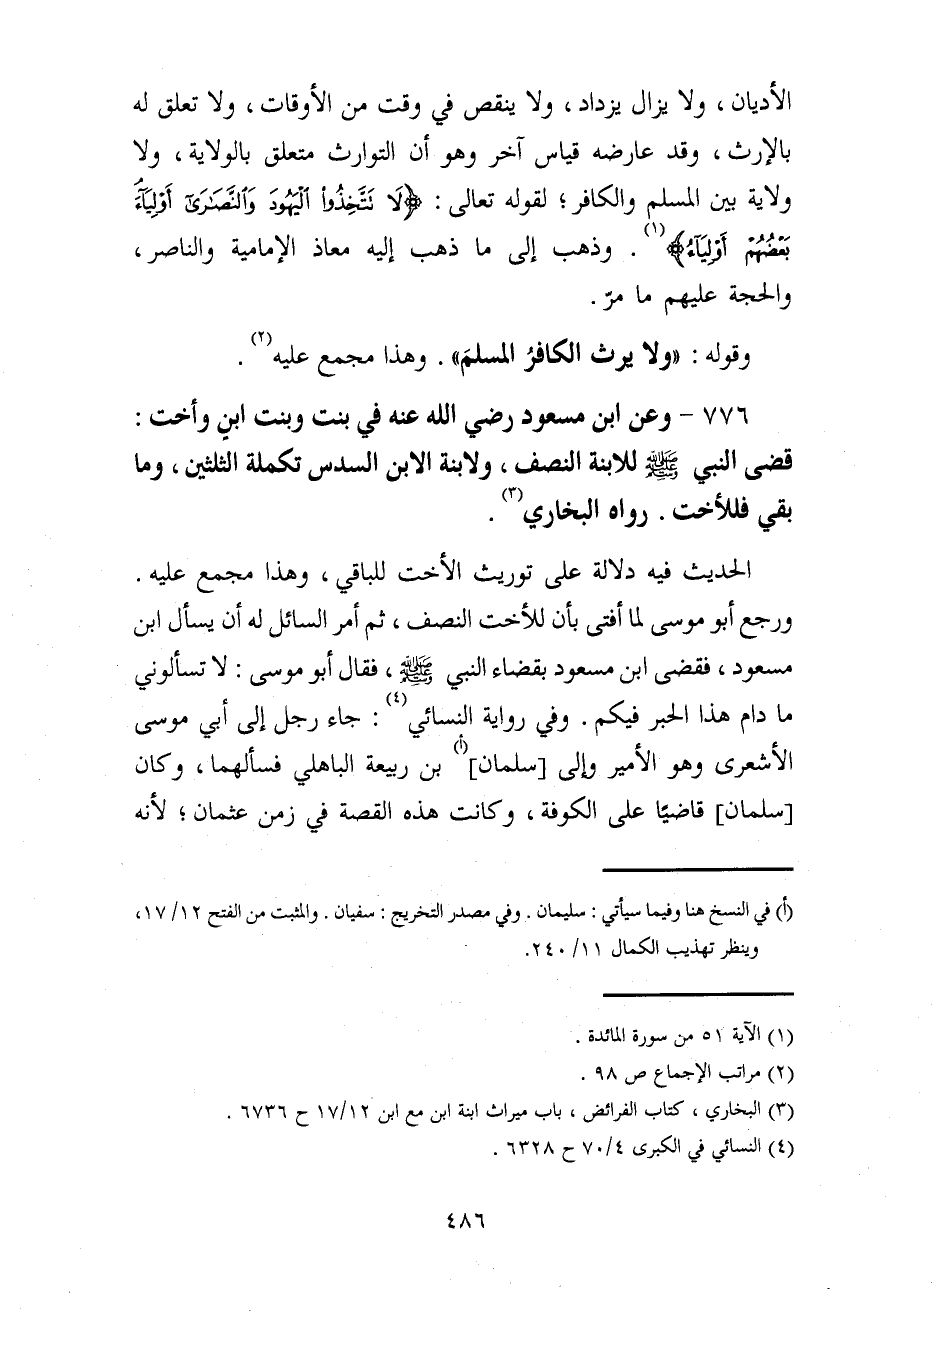 الأديان ، ولا يزال يزداد ، ولا ينقص في وقت من الأوقات ، ولا تعلق له
بالإرث ، وقد عارضه قياس آخر وهو أن التوارث متعلق بالولاية ، ولا
ولاية بين المسلم والكافر ؛ لقوله تعالى : ﴿لَا تَتَّخِذُوا۟ ٱلْيَهُودَ وَٱلنَّصَـٰرَىٰٓ أَوْلِيَآءَۘ
بَعْضُهُمْ أَوْلِيَآءُ﴾(١) . وذهب إلى ما ذهب إليه معاذ الإمامية والناصر ،
والحجة عليهم ما مرّ .
وقوله : «ولا يرث الكافرُ المسلمَ» . وهذا مجمع عليه(٢) .
٧٧٦ - وعن ابن مسعود رضي الله عنه في بنت وبنت ابنٍ وأخت :
قضى النبي ﷺ للابنة النصف ، ولابنة الابن السدس تكملة الثلثين ، وما
بقي فللأخت . رواه البخاري(٣) .
الحديث فيه دلالة على توريث الأخت للباقي ، وهذا مجمع عليه .
ورجع أبو موسى لما أفتى بأن للأخت النصف ، ثم أمر السائل له أن يسأل ابن
مسعود ، فقضى ابن مسعود بقضاء النبي ﷺ ، فقال أبو موسى : لا تسألوني
ما دام هذا الحبر فيكم . وفي رواية النسائي(٤) : جاء رجل إلى أبي موسى
الأشعرى وهو الأمير وإلى [سلمان](أ) بن ربيعة الباهلي فسألهما ، وكان
[سلمان] قاضيًا على الكوفة ، وكانت هذه القصة في زمن عثمان ؛ لأنه
(أ) في النسخ هنا وفيما سيأتي : سليمان . وفي مصدر التخريج : سفيان . والمثبت من الفتح ١٢/ ١٧،
وينظر تهذيب الكمال ١١/ ٢٤٠.
(١) الآية ٥١ من سورة المائدة .
(٢) مراتب الإجماع ص ٩٨ .
(٣) البخاري ، كتاب الفرائض ، باب ميراث ابنة ابن مع ابن ١٧/١٢ ح ٦٧٣٦ .
(٤) النسائي في الكبرى ٧٠/٤ ح ٦٣٢٨ .
٤٨٦